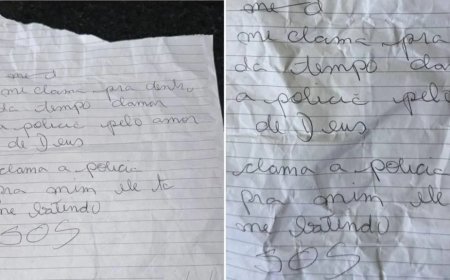 me d
me clama pra dentro
da tempo damor
a policia pelo amor
de Deus
clama a policia
pra mim ele ta
me batindo
SOS
me d
me clama pra
da tempo dam
a policia pelo
de Deus
clama a polici
pra mim ele
me batindo
SOS